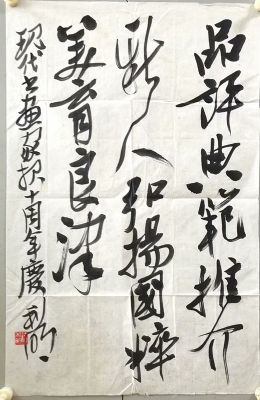 品評典範推介
新人弘揚國粹
美育良津
现代书画家报十周年慶